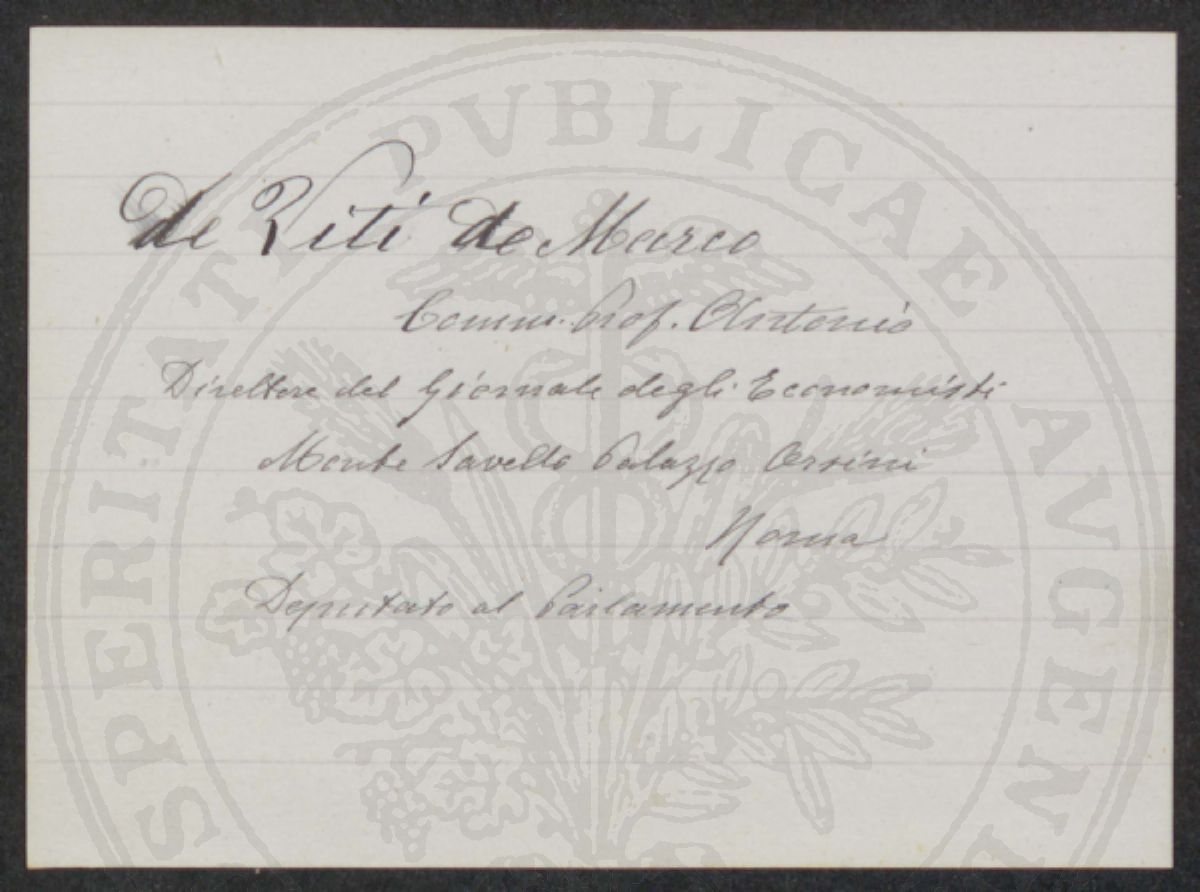 de Viti de Marco
Comm. Prof. Antonio
Direttore del Giornale degli Economisti
Monte Savello Palazzo Orsini
Roma
Deputato al Parlamento
SPERITATI PVBLICAE AVGEN